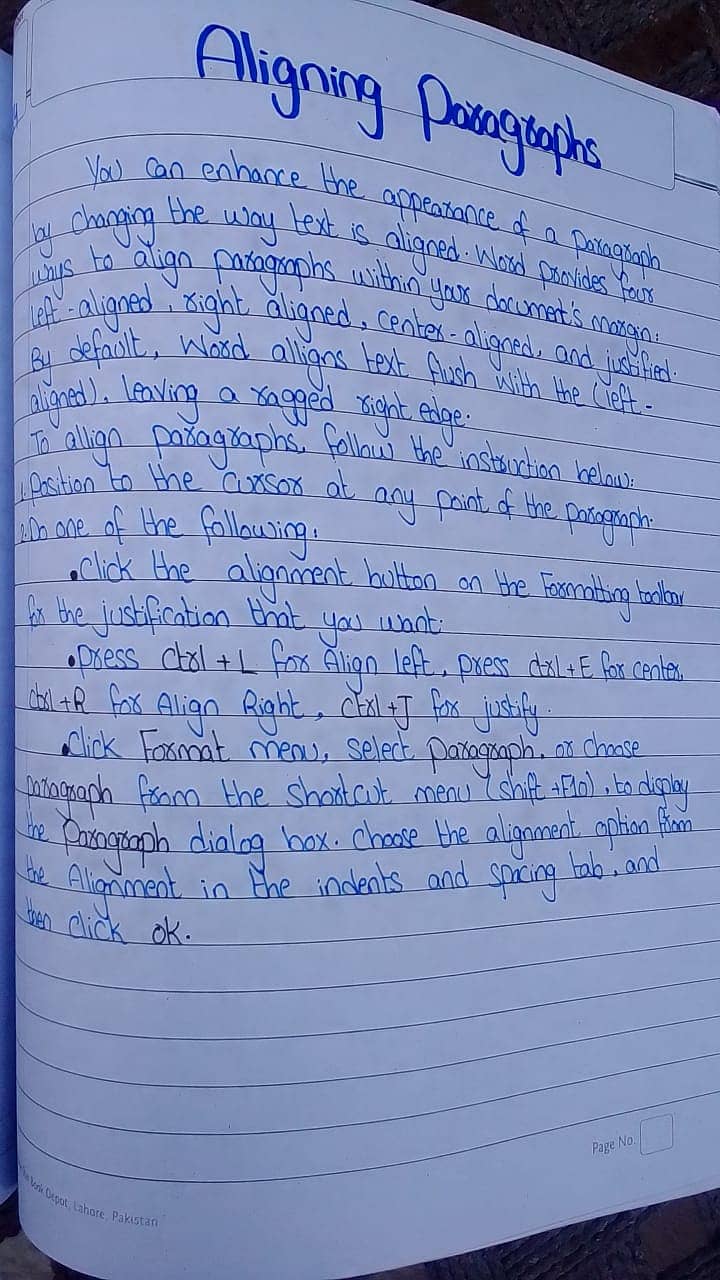 Aligning Paragraphs
You can enhance the appearance of a paragraph
by changing the way text is aligned. Word provides four
ways to align paragraphs within your document's margin:
left-aligned, right aligned, center-aligned, and justified.
By default, Word alligns text flush with the (left-
aligned), leaving a ragged right edge.
To allign paragraphs, follow the instruction below:
1. Position to the cursor at any point of the paragraph.
2. Do one of the following:
•Click the alignment button on the Formatting toolbar
for the justification that you want:
•Press Ctrl +L for Align left, press ctrl+E for center,
ctrl +R for Align Right, Ctrl +J for justify.
•Click Format menu, select paragraph, or choose
paragraph from the Shortcut menu (shift +F10), to display
the Paragraph dialog box. Choose the alignment option from
the Alignment in the indents and spacing tab, and
then click ok.
Page No.
Book Depot, Lahore, Pakistan